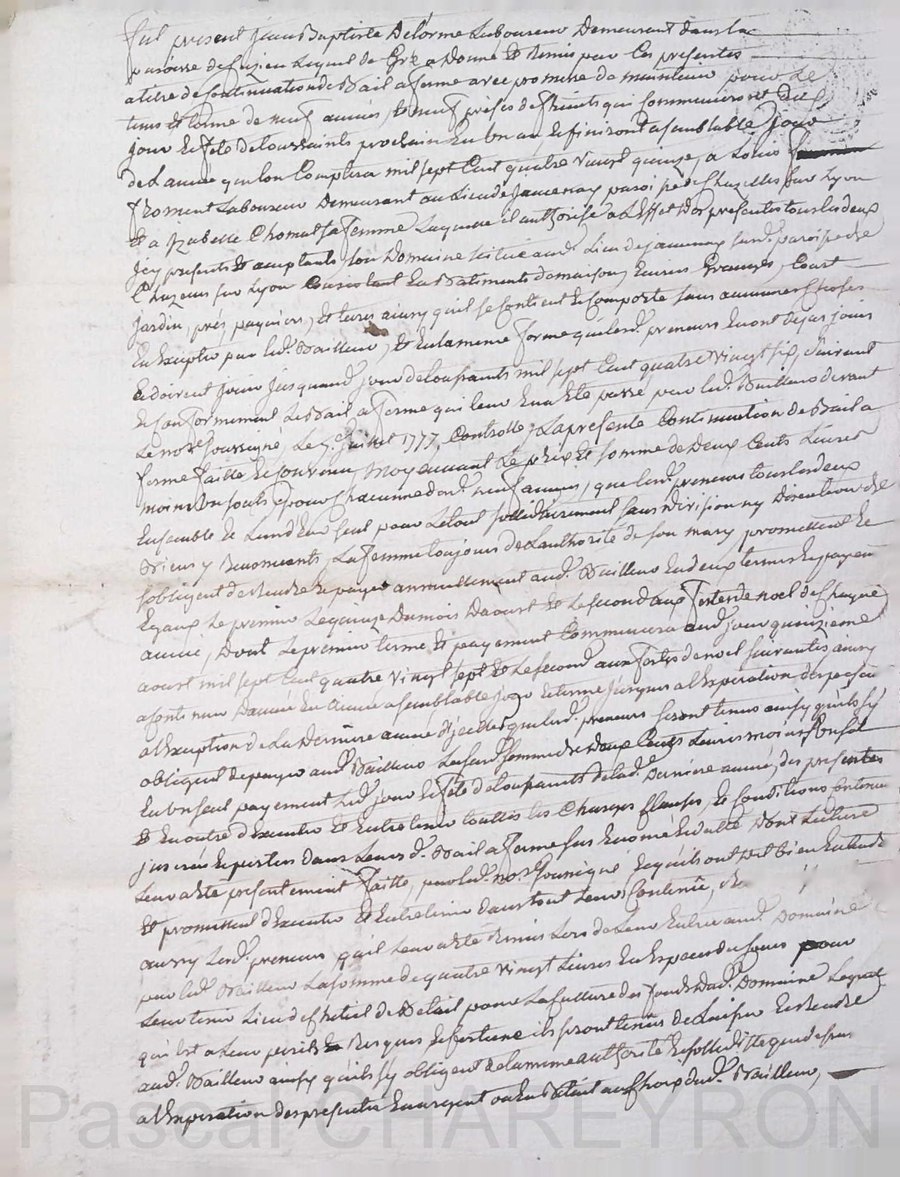 fut present Jean Baptiste Delorme Laboureur Demeurant dans la
paroisse de lequel de Gré a Donné et Remis par les presentes
a titre de Continuation de Bail a ferme avec promesse de maintenir pour Le
tems et terme de neuf années, et neuf prises de fruits qui Commenceront du
jour et fete de Toussaints prochain En un an et finiront a semblable Jour
de Lannée que lon Comptera mil sept Cent quatre vingt quinze, a Louis
froment Laboureur Demeurant au Lieu de Jaucenay paroisse de Chazelles sur Lyon
et a Izabelle Chomat sa femme Laquelle il authorise a L'Effet des presentes tous les deux
Icy presents et acceptants, son Domaine scitué aud. Lieu de jaucenay susd. paroisse de
Chazelles sur Lyon Consistant En Batiments de maison, Ecuries Granges, Court
Jardin, prés paquiers, et terres ainsy qu'il se Contient et Comporte sans aucunes choses
En Excepter par led. Bailleur, et En la meme forme que lesd. preneurs En ont deja joui
et doivent Jouir Jusqu'aud. jour de Toussaints mil sept Cent quatre vingt six, suivant
et Conformement Le Bail a ferme qui leur En a Eté passé par led. Bailleur devant
Le nore. soussigné, Le juillet 1777, Controllé, La presente Continuation de Bail a
ferme faitte et Convenue moyennant Le prix et somme de Deux Cents Livres
moins un sout pour Chacune desd. neuf années, que lesd. preneurs tous les deux
Ensemble et L'un d'Eux seul pour Le tout sollidairement sans Division ny Discution de
Biens y Renoncants, La femme toujours de L'authorité de son mary promettent et
s'obligent de Rendre et payer annuellement aud. Bailleur En deux termes et payem.
Egaux Le premier Le quinze Du mois Daoust et Le second aux fetes de noel de Chaque
année, Dont Le premier terme et payement Commencera aud. jour quinzieme
aoust mil sept Cent quatre vingt sept et Le second aux fetes de noel suivantes ainsy
a Continuer Dannée En année a semblable jour et terme jusques a L'Expiration des
a L'Exception de La Derniere année d'Iceller que lesd. preneurs seront tenus ainsy qu'ils s'y
obligent de payer aud. Bailleur Lesd. somme de Deux Cents Livres moins un sol
En un seul payement Led. jour et fete de Toussaints de lad. Derniere année, des presentes
et En outre d'Executer et Entretenir touttes les Charges Clauses, et Conditions contenues
inserées et portées Dans Leurd. Bail a ferme sus Enoncé et datté Dont Lecture
Leur a Eté presentement faitte, par led. nore. soussigné, et qu'ils ont dit bien Entendre
Et promettent d'Executer et Entretenir dans tout Leur Contenu,
aussy Lesd. preneurs qu'il Leur a Eté Remis Lors de Leur Entrée aud. Domaine
par led. Bailleur La somme de quatre vingt Livres En Especes de Cours pour
Leur tenir Lieu de Cheteil de Betail pour La Culture des fonds dud. Domaine Lequel
qui Est a Leur perils et Risques et fortune ils seront tenus de Laisser et Rendre
aud. Bailleur ainsy qu'ils s'y obligent de la meme authorité et sollidité que dessus
a L'Expiration des presentes En argent ou En Betail au Choix dud. Bailleur,
Pascal CHAREYRON